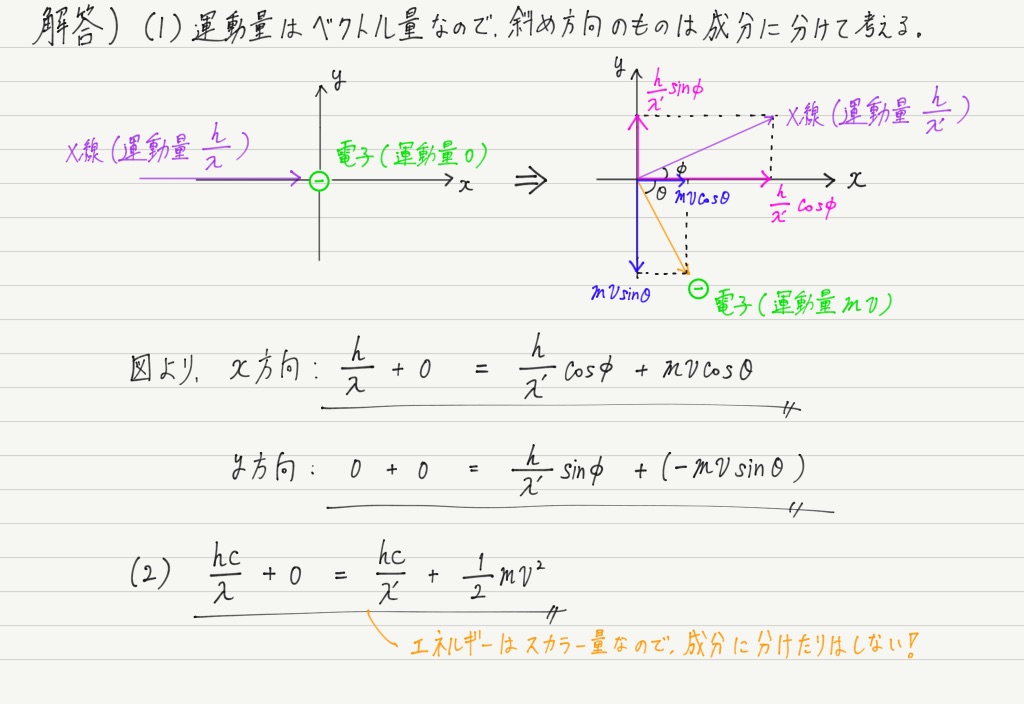 解答) (1) 運動量はベクトル量なので、斜め方向のものは成分に分けて考える.
y
X線(運動量 h/λ)
電子(運動量0)
x
⇒
y
h/λ' sinφ
X線(運動量 h/λ')
φ
θ
mvcosθ
x
h/λ' cosφ
mvsinθ
電子(運動量mv)
図より、x方向: h/λ + 0 = h/λ' cosφ + mvcosθ
y方向: 0 + 0 = h/λ' sinφ + (-mvsinθ)
(2) hc/λ + 0 = hc/λ' + 1/2 mv²
エネルギーはスカラー量なので、成分に分けたりはしない!